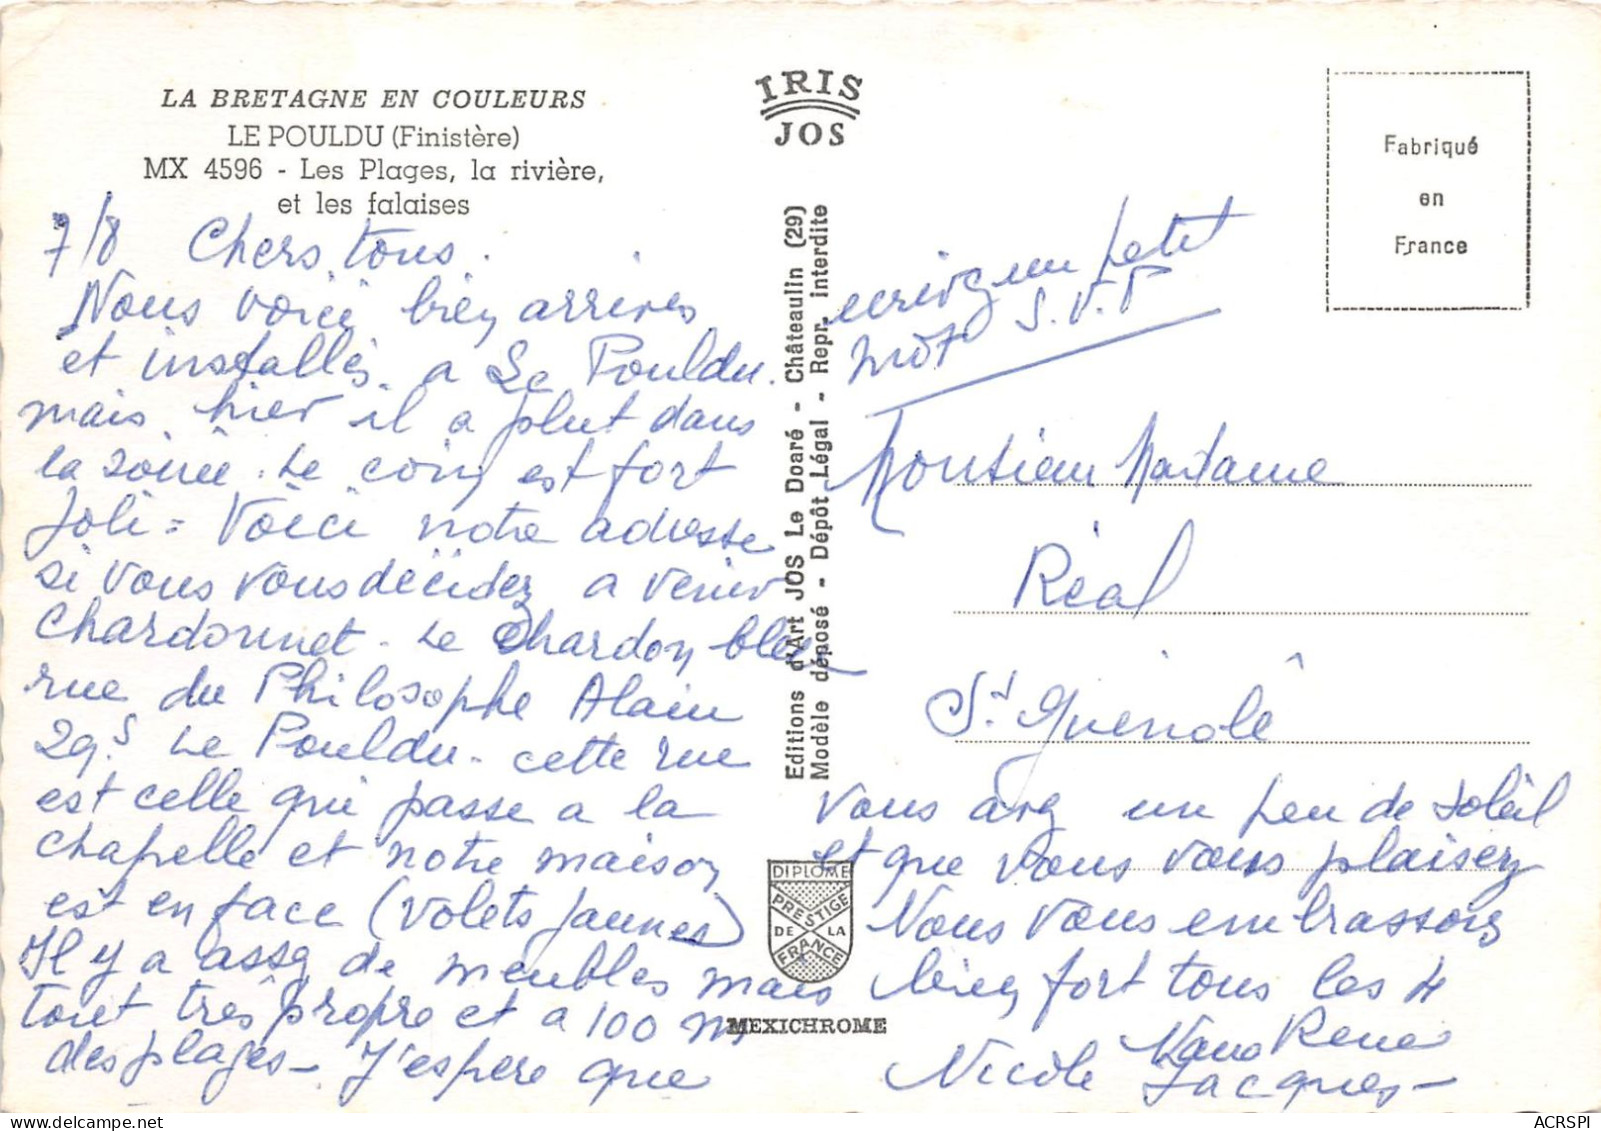 LA BRETAGNE EN COULEURS
LE POULDU (Finistère)
MX 4596 - Les Plages, la rivière,
et les falaises
7/8 Chers tous.
Nous voici bien arrives
et installés a Le Pouldu.
mais hier il a plut dans
la soirée. Le coin est fort
Joli = Voici notre adresse
si vous vous décidez a venir
Chardonnet - Le Chardon bleu
rue du Philosophe Alain
29S Le Pouldu - cette rue
est celle qui passe a la
chapelle et notre maison
est en face (volets jaunes)
Il y a assez de meubles mais
tout très propre et a 100 m
des plages - J'espère que
IRIS
JOS
Editions d'Art JOS Le Doaré - Châteaulin (29)
Modèle déposé - Dépôt Légal - Repr. interdite
DIPLOME
PRESTIGE
DE LA
FRANCE
MEXICHROME
Fabriqué
en
France
ecrivez un petit
mot S.V.P
Monsieur Madame
Réal
St Guénolé
vous avez un peu de soleil
et que vous vous plaisez
Nous vous embrassons
bien fort tous les 4
Nano René
Nicole Jacques -
ACRSPI